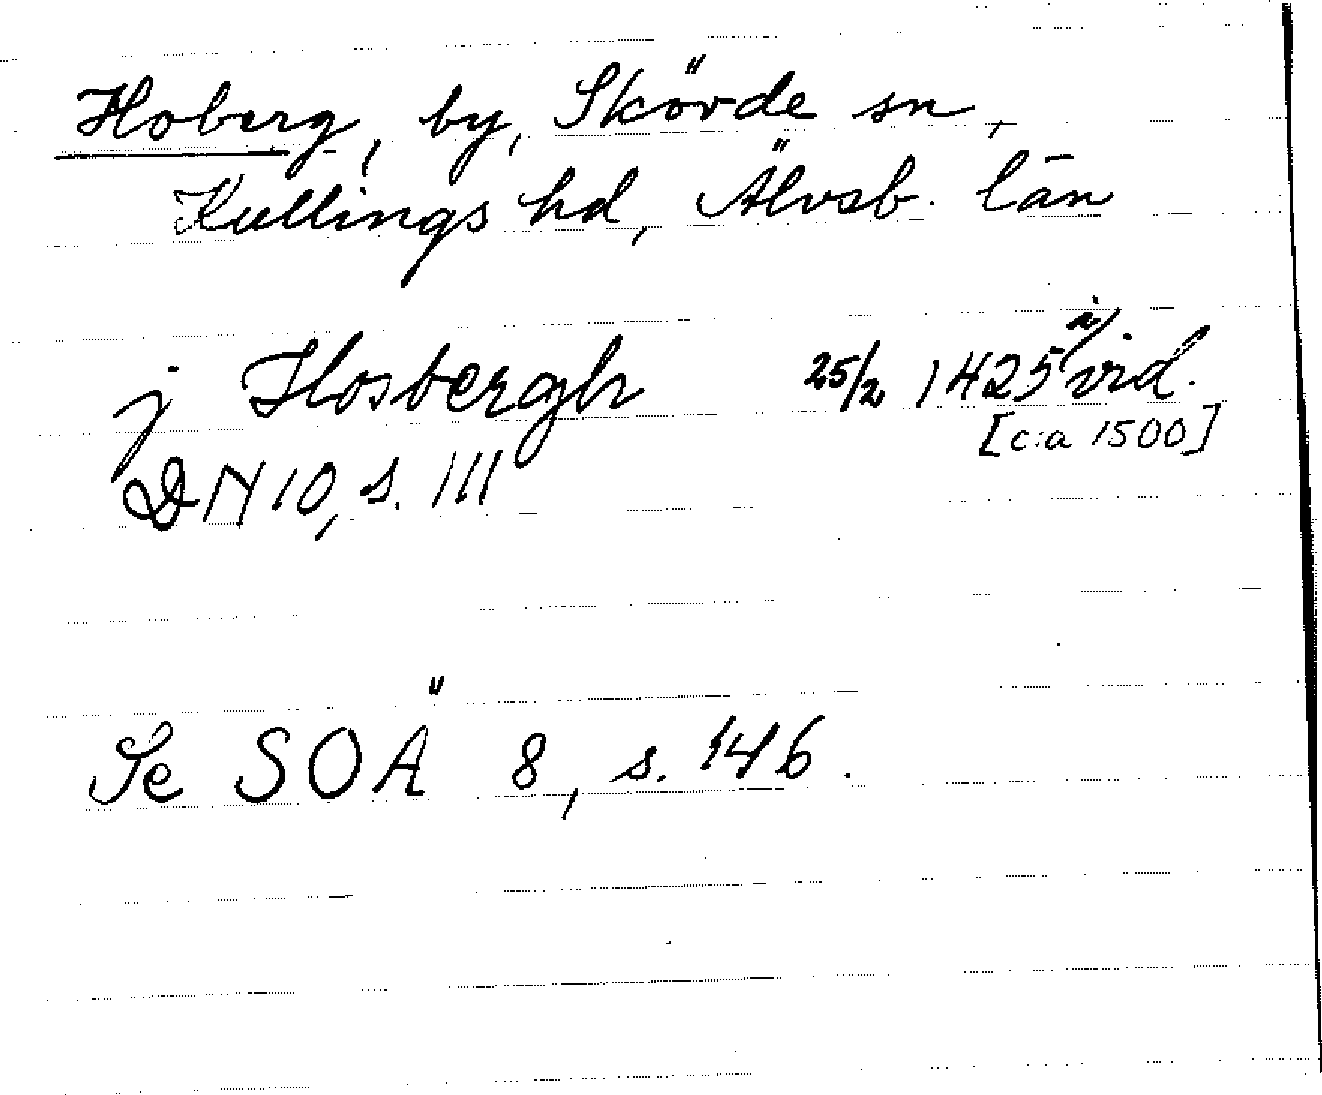 Hoberg, by, Skövde sn,
Kullings hd, Älvsb. län
j Hosbergh 25/2 1425 i vid.
[c:a 1500]
DN 10, s. 111
Se SOÄ 8, s. 146.